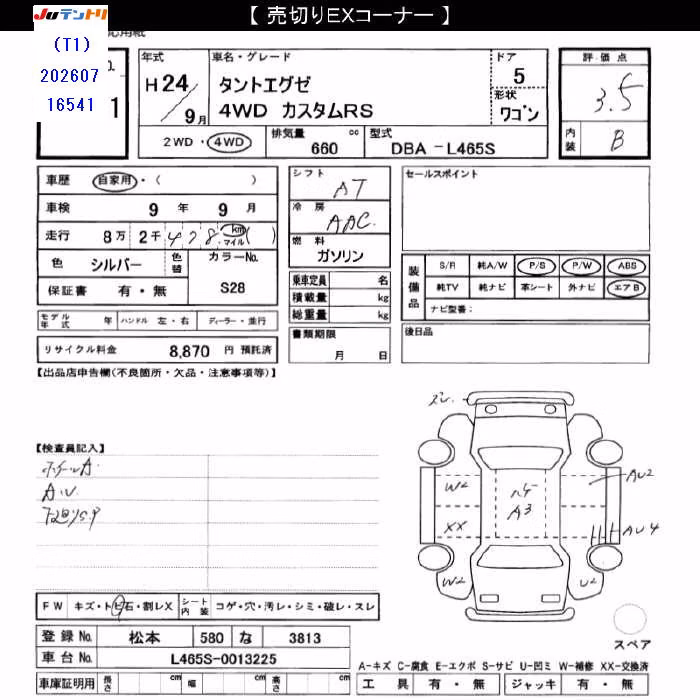 【 売切りEXコーナー 】
JUテントリ
(T1)
202607
16541
1
年式
H24
9月
車名・グレード
タントエグゼ
4WD カスタムRS
ドア
5
形状
ワゴン
評価点
3.5
内装
B
2WD・4WD
排気量
660 cc
型式
DBA-L465S
車歴 自家用・( )
車検 9年 9月
走行 8万 2千 478 km マイル ( )
色 シルバー 色替
カラーNo.
S28
保証書 有・無
シフト
AT
冷房
AAC
燃料
ガソリン
乗車定員 名
積載量 kg
総重量 kg
セールスポイント
装備品
S/R 純A/W P/S P/W ABS
純TV 純ナビ 革シート 外ナビ エアB
ナビ型番:
モデル年式 年 ハンドル 左・右 ディーラー・並行
リサイクル料金 8,870 円 預託済
書類期限
月 日
後日品
【出品店申告欄(不良箇所・欠品・注意事項等)】
【検査員記入】
A.U.
W2
XX
W2
A3
AU2
AU4
U2
FW キズ・トビ石・割レX
シート内装 コゲ・穴・汚レ・シミ・破レ・スレ
登録No. 松本 580 な 3813
車台No. L465S-0013225
車庫証明用 長さ cm 幅 cm 高さ cm
スペア
A-キズ C-腐食 E-エクボ S-サビ U-凹ミ W-補修 XX-交換済
工具 有・無 ジャッキ 有・無